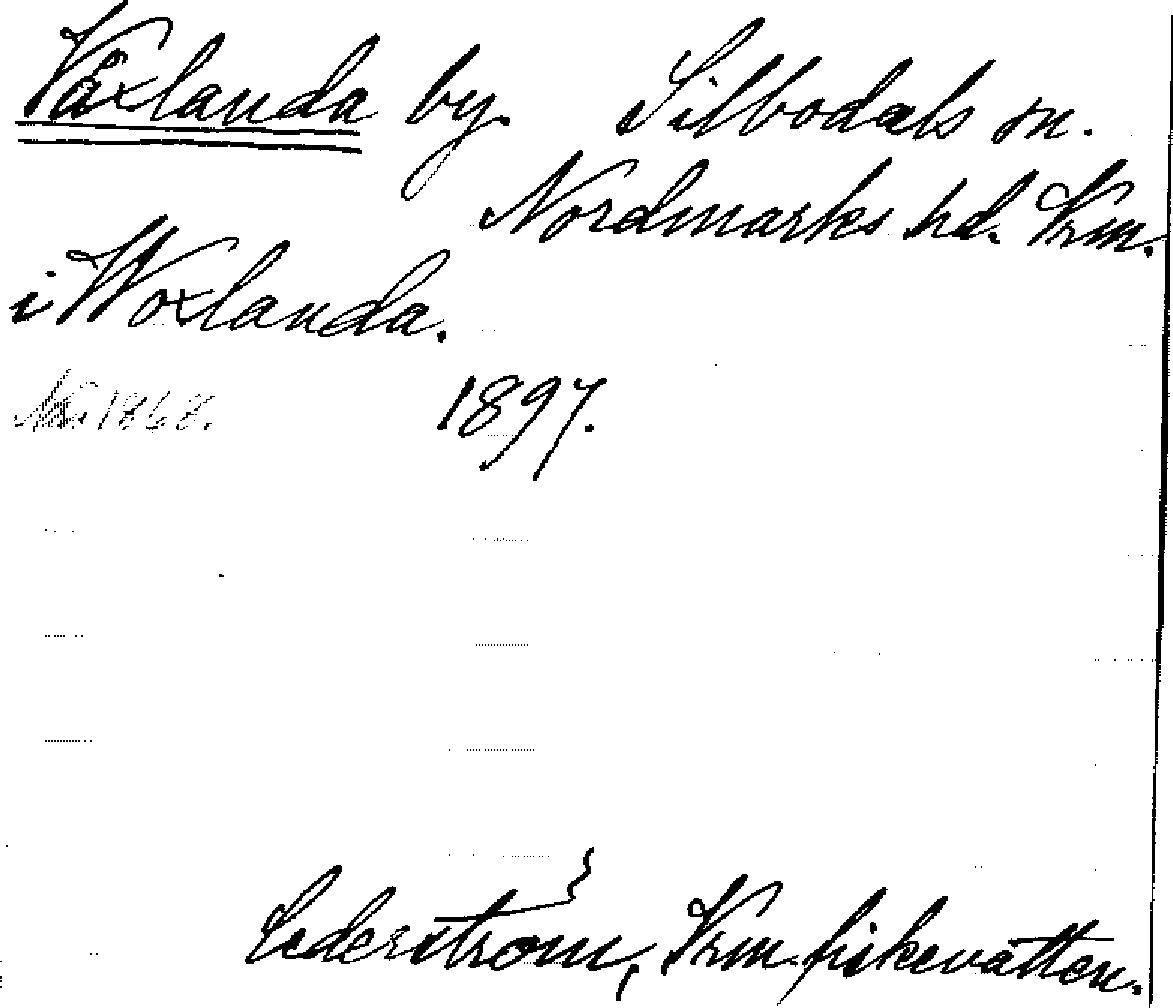 Våxlanda by. Silbodals sn.
Nordmarks hd. Vrm.
i Woxlanda.
1868. 1897.
Cederström, Vrm. fiskevatten.